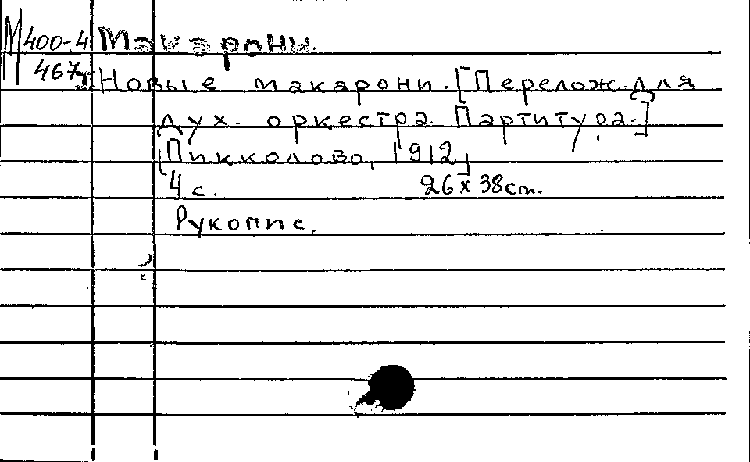 М 400-4 Макарони.
467 Новые макарони. [Перелож. для
дух. оркестра. Партитура.]
[Пикколово, 1912]
4 с. 26 х 38 cm.
Рукопис.